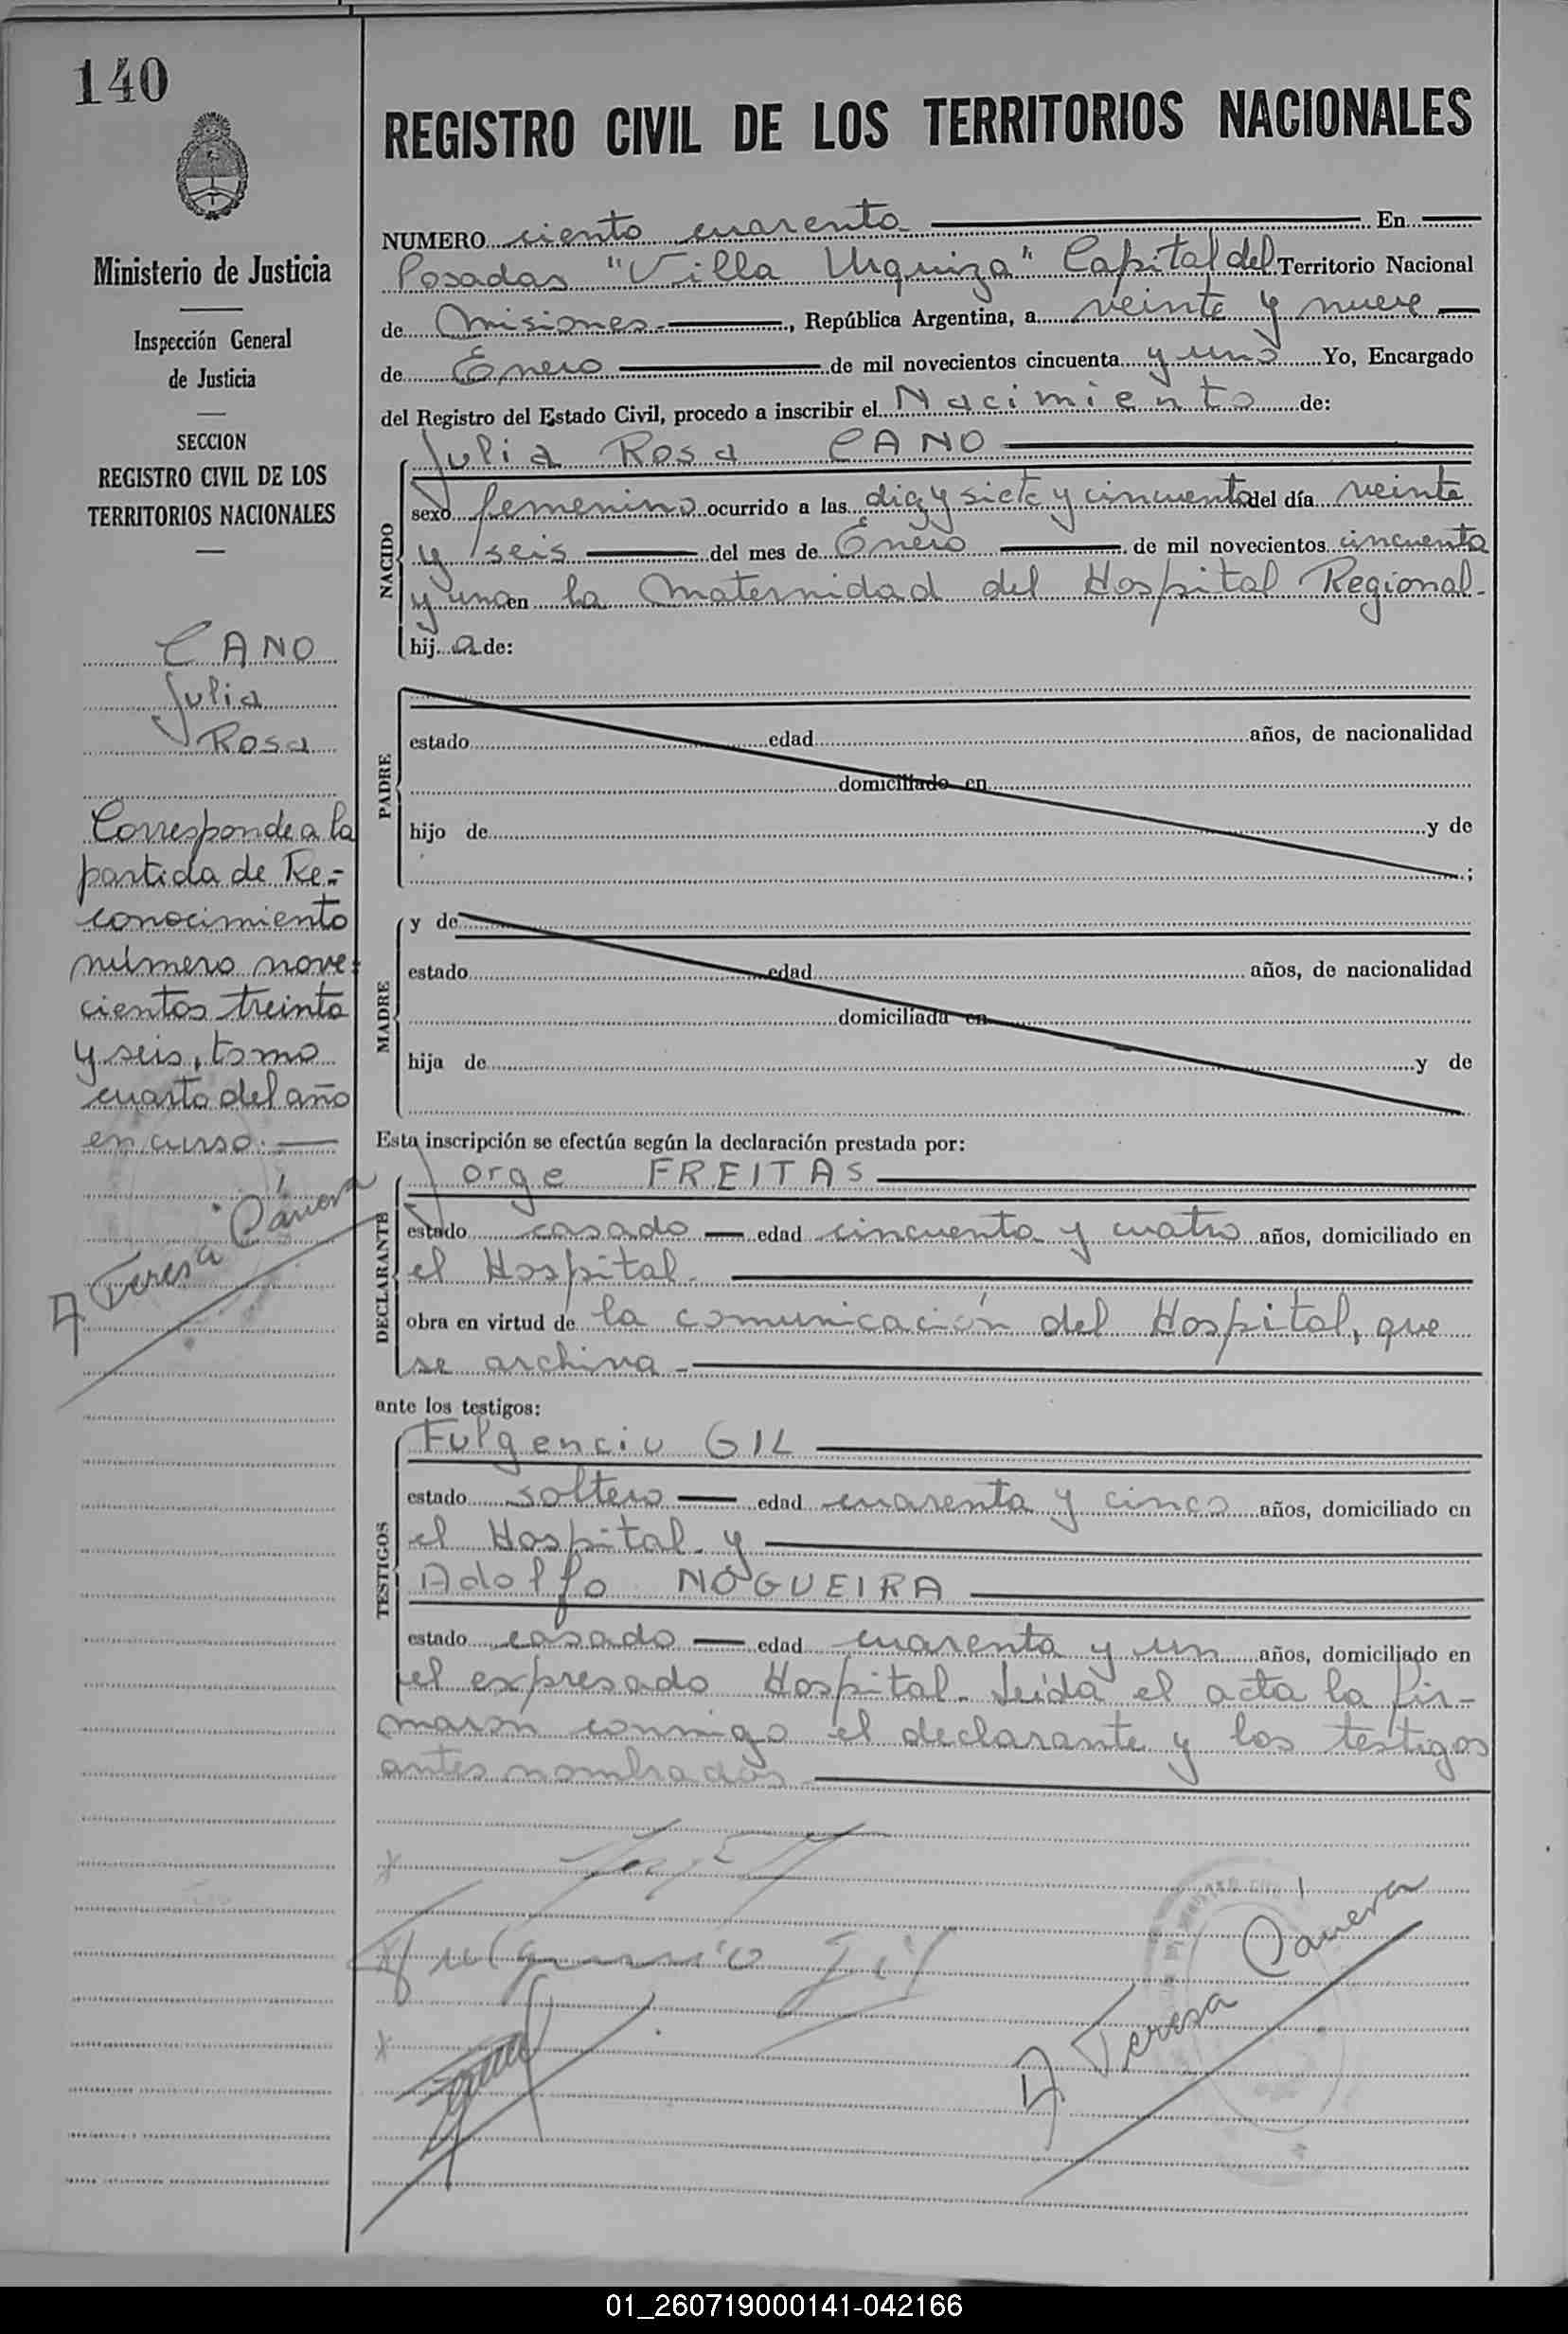 140
REGISTRO CIVIL DE LOS TERRITORIOS NACIONALES
Ministerio de Justicia
Inspección General
de Justicia
SECCION
REGISTRO CIVIL DE LOS
TERRITORIOS NACIONALES
CANO
Julia
Rosa
Corresponde a la
partida de Re-
conocimiento
número nove-
cientos treinta
y seis, tomo
cuarto del año
en curso.
A Teresa
NUMERO ciento cuarenta En
Posadas "Villa Urquiza" Capital del Territorio Nacional
de Misiones, República Argentina, a veinte y nueve
de Enero de mil novecientos cincuenta y uno Yo, Encargado
del Registro del Estado Civil, procedo a inscribir el Nacimiento de:
NACIDO
Julia Rosa CANO
sexo femenino ocurrido a las diez y siete y cincuenta del día veinte
y seis del mes de Enero de mil novecientos cincuenta
y uno en la Maternidad del Hospital Regional.
hij a de:
PADRE
estado edad años, de nacionalidad
domiciliado en
hijo de y de
;
MADRE
y de
estado edad años, de nacionalidad
domiciliada en
hija de y de
Esta inscripción se efectúa según la declaración prestada por:
DECLARANTE
Jorge FREITAS
estado casado edad cincuenta y cuatro años, domiciliado en
el Hospital.
obra en virtud de la comunicación del Hospital, que
se archiva.
ante los testigos:
TESTIGOS
Fulgencio GIL
estado soltero edad cuarenta y cinco años, domiciliado en
el Hospital y
Adolfo NOGUEIRA
estado casado edad cuarenta y un años, domiciliado en
el expresado Hospital. Leída el acta la fir-
maron conmigo el declarante y los testigos
antes nombrados
Fulgencio Gil
A Teresa
01_260719000141-042166